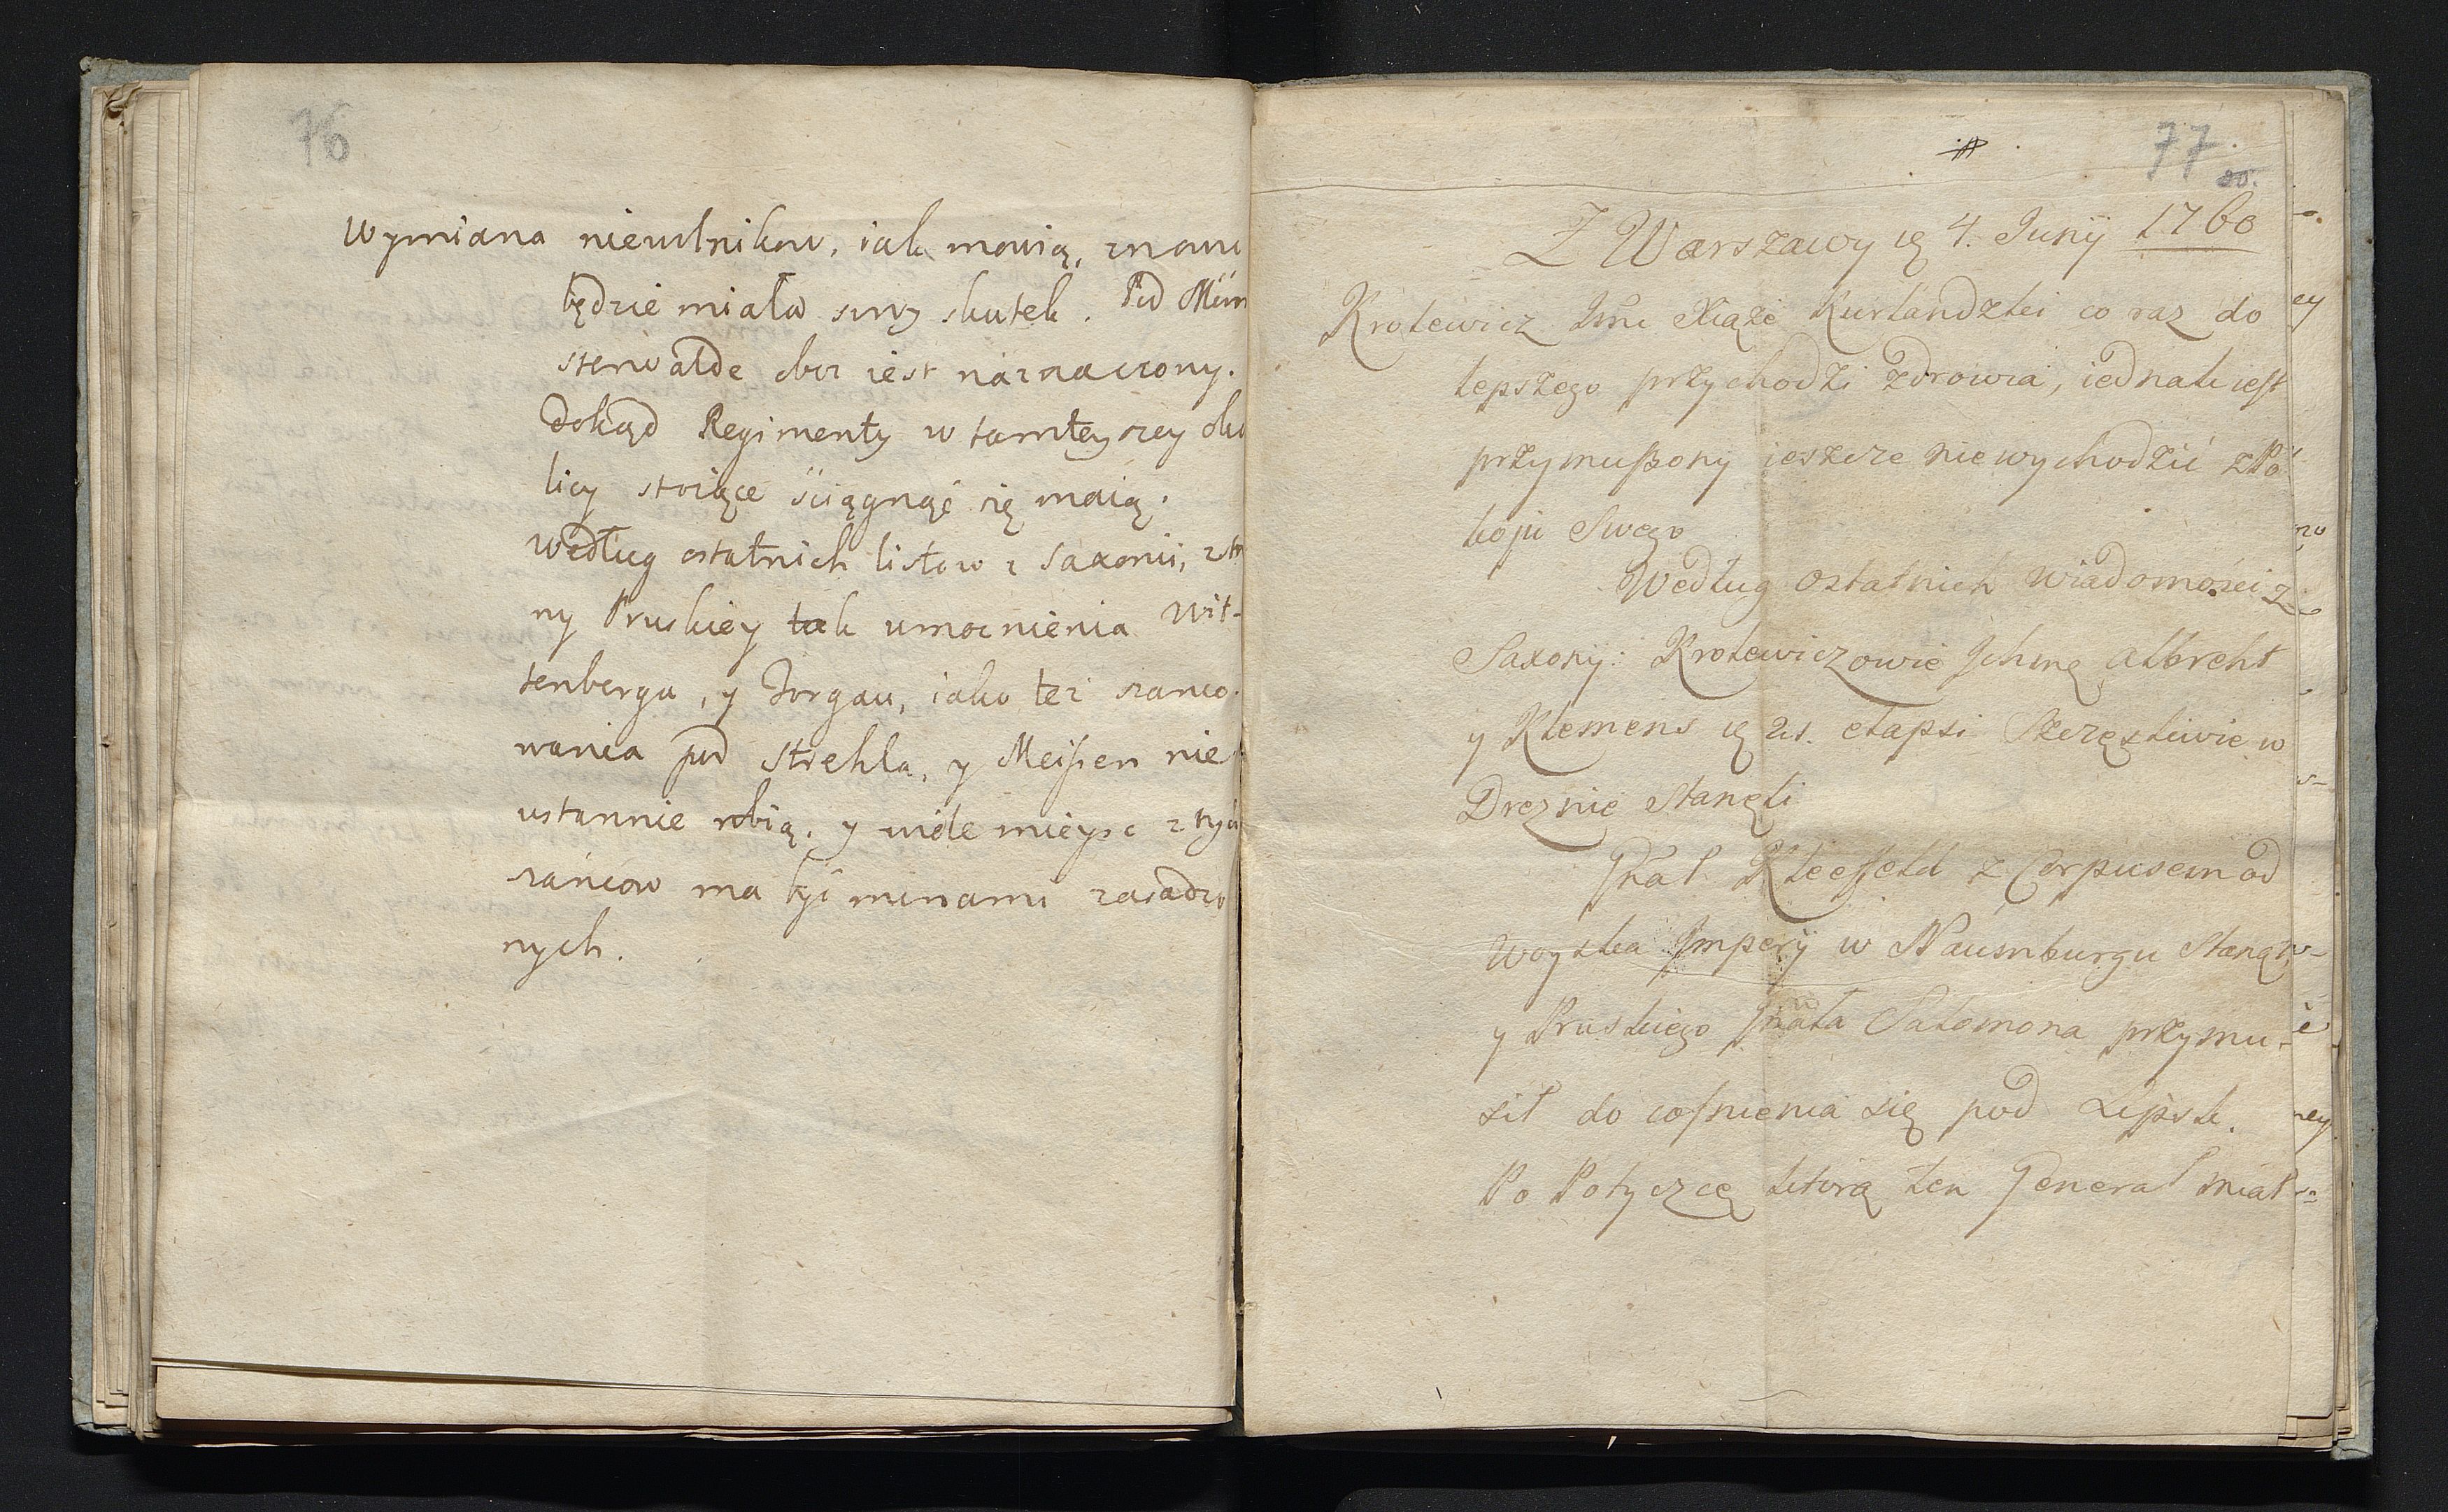 76
Wymiana niewolnikow, iak mowią, znowu
będzie miała swoy skutek. Pod Mün
sterwalde oboz iest náznaczony.
dokąd Regimenty w tamteyszey oko
licy stoiące ściągnąć się maią.
według ostatnich listow z Saxonii, stro
ny Pruskiey tak umocnienia Wit-
tenberga, y Torgau, iako też szanco-
wania pod Strehla, y Meißen nie
ustannie robią. y wiele mieysc z tych
szańcow ma być minami zasadzo
nych.
77
80.
Z Warszawy ę 4. Junÿ 1760
Krolewicz Jmć Xiąże Kurlandzki co raz do
lepszego przychodzi zdrowia, iednak iest
przymuszony ieszcze nie wychodzić z Po
koju Swego
Według ostatnich wiadomości z
Saxonÿ: Krolewiczowie Ichmę Albrecht
y Klemens ę 21. elapsi Szczęśliwie w
Dreznie Stanęli
Gnał Kleefeld z Corpusem od
Woyska Imperÿ w Naumburgu Stanął
y Pruskiego Gnała Salomona przymu-
sił do cofnienia się pod Lipsk.
Po Potyczcę ktorą ten Generał miał